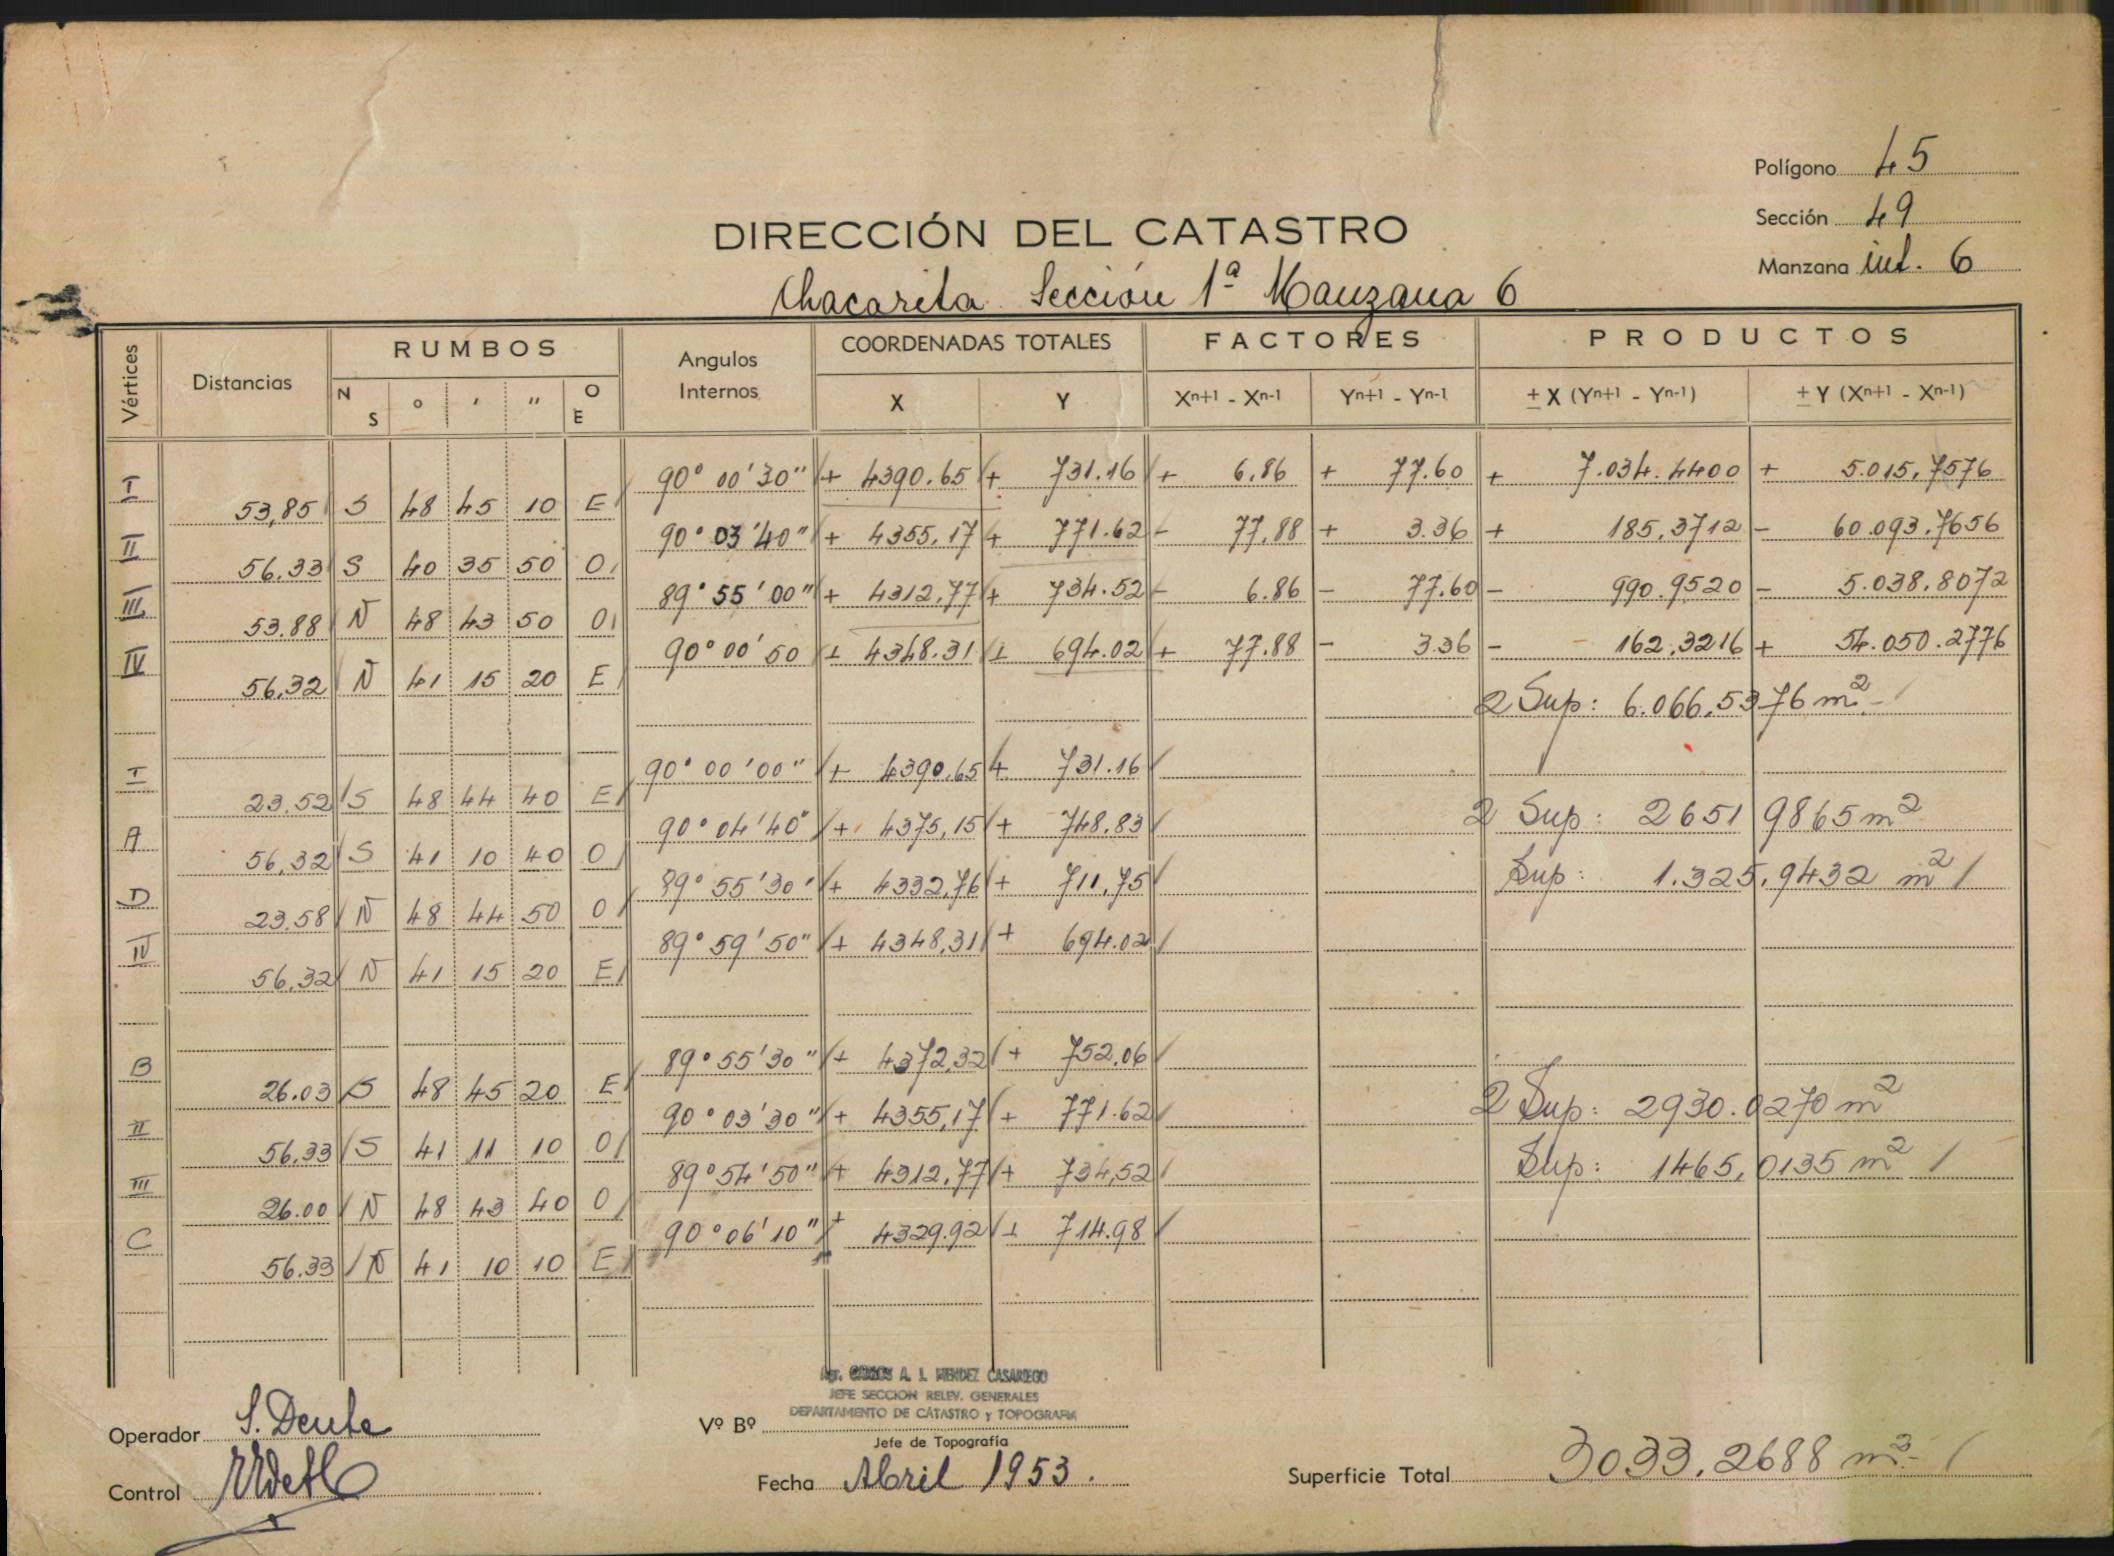 Polígono 45
Sección 49
Manzana int. 6
DIRECCIÓN DEL CATASTRO
Chacarita Sección 1ª Manzana 6
Vértices Distancias RUMBOS Angulos Internos COORDENADAS TOTALES FACTORES PRODUCTOS
N S ° ' " O E X Y Xn+1 - Xn-1 Yn+1 - Yn-1 ± X (Yn+1 - Yn-1) ± Y (Xn+1 - Xn-1)
I 90° 00' 30" + 4390.65 + 731.16 + 6.86 + 77.60 + 7.034.4400 + 5.015,7576
53,85 S 48 45 10 E
II 90° 03' 40" + 4355,17 + 771.62 - 77,88 + 3.36 + 185,3712 - 60.093.7656
56.33 S 40 35 50 O
III 89° 55' 00" + 4312,77 + 734.52 - 6.86 - 77.60 - 990.9520 - 5.038.8072
53.88 N 48 43 50 O
IV 90° 00' 50 + 4348.31 + 694.02 + 77.88 - 3.36 - 162,3216 + 54.050.2776
56,32 N 41 15 20 E
2 Sup: 6.066,5376 m2
I 90° 00' 00" + 4390.65 + 731.16
23.52 S 48 44 40 E 2 Sup: 2651 9865 m2
A 90° 04' 40" + 4375,15 + 748.83
56,32 S 41 10 40 O Sup: 1.325,9432 m2
D 89° 55' 30" + 4332,76 + 711,75
23.58 N 48 44 50 O
IV 89° 59' 50" + 4348,31 + 694.02
56,32 N 41 15 20 E
B 89° 55' 30" + 4372,32 + 752,06
26.03 S 48 45 20 E 2 Sup: 2930.0270 m2
II 90° 03' 30" + 4355,17 + 771.62
56.33 S 41 11 10 O Sup: 1465,0135 m2
III 89° 54' 50" + 4312,77 + 734,52
26.00 N 48 43 40 O
C 90° 06' 10" + 4329.92 + 714.98
56.33 N 41 10 10 E
Agr. CARLOS A. J. MENDEZ CASARIEGO
JEFE SECCION RELEV. GENERALES
DEPARTAMENTO DE CATASTRO y TOPOGRAFIA
Operador Vº Bº
Jefe de Topografía
Control Fecha Abril 1953. Superficie Total 3033,2688 m2